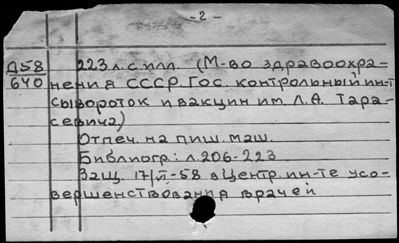 - 2 -
Д58 223 л. с илл. (М-во здравоохра-
640 нения СССР. Гос. контрольный ин-т
сывороток и вакцин им. Л.А. Тара-
севича)
Отпеч. на пиш. маш.
Библиогр: л. 206-223
Защ. 17/VI-58 в Центр. ин-те усо-
вершенствования врачей